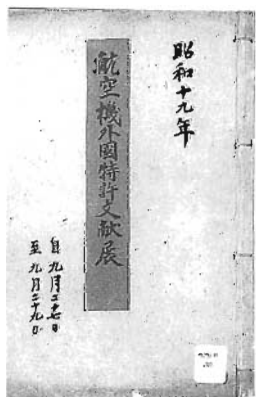 昭和十九年
航空機外國特許文献展
自九月二十七日
至九月二十九日